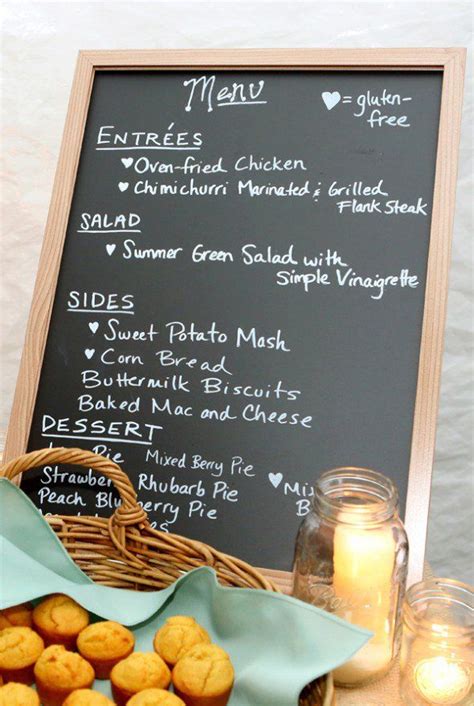 Menu
♥ = gluten-
free
ENTRÉES
♥ Oven-fried Chicken
♥ Chimichurri Marinated & Grilled
Flank Steak
SALAD
♥ Summer Green Salad with
Simple Vinaigrette
SIDES
♥ Sweet Potato Mash
♥ Corn Bread
Buttermilk Biscuits
Baked Mac and Cheese
DESSERT
Pie Mixed Berry Pie
Rhubarb Pie
Peach Blueberry Pie
♥